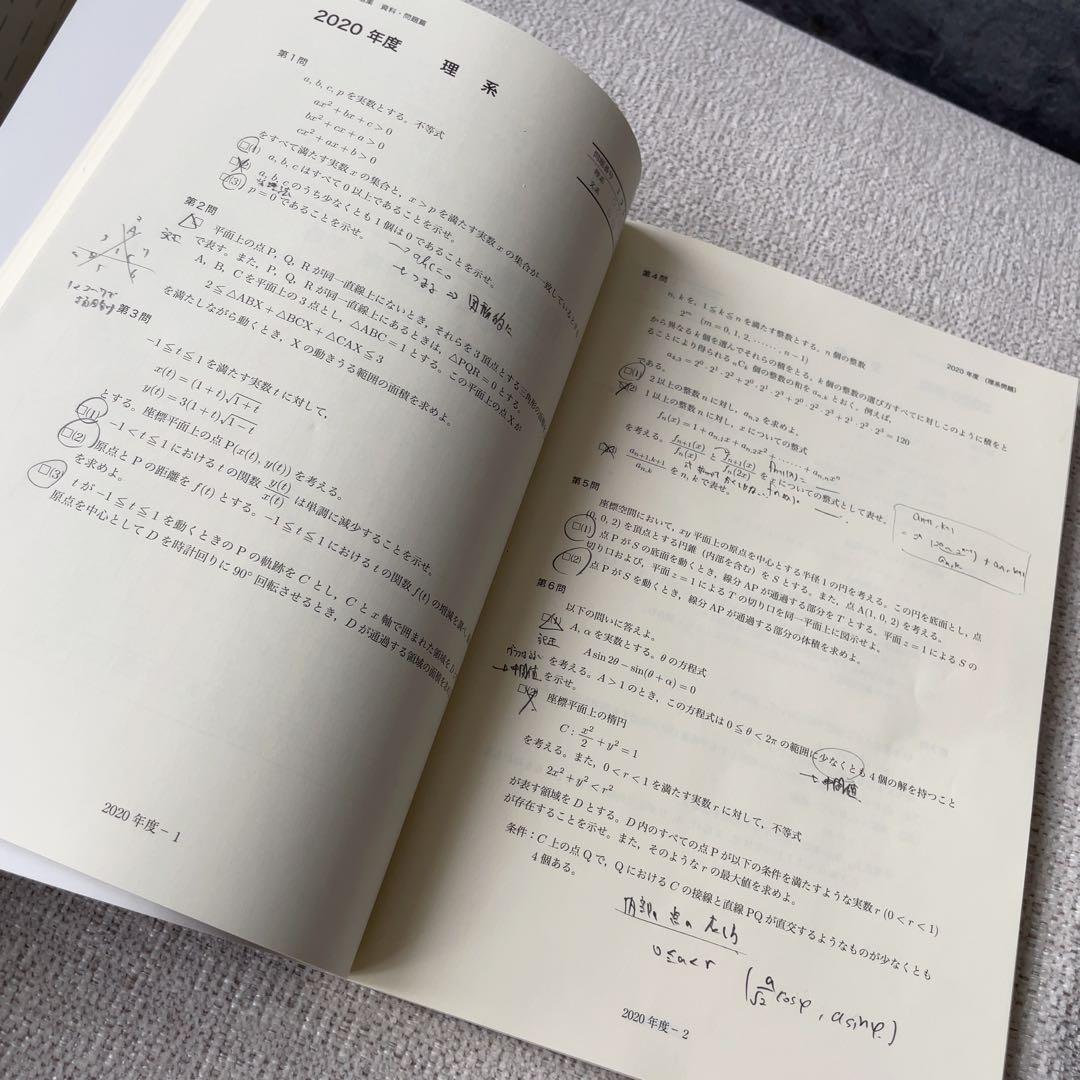 資料・問題篇
2020 年度 理 系
第1問
a, b, c, p を実数とする。不等式
ax²+bx+c>0
bx²+cx+a>0
cx²+ax+b>0
をすべて満たす実数 x の集合と，x>p を満たす実数 x の集合が一致しているとする。
□(1) a, b, c はすべて 0 以上であることを示せ。
□(2) a, b, c のうち少なくとも 1 個は 0 であることを示せ。
□(3) p=0 であることを示せ。
→ abc=0
第2問
平面上の点 P, Q, R が同一直線上にないとき，それらを 3 頂点とする三角形の面積を △PQR
で表す。また，P, Q, R が同一直線上にあるときは，△PQR=0 とする。
A, B, C を平面上の 3 点とし，△ABC=1 とする。この平面上の点 X が
2≦△ABX+△BCX+△CAX≦3
を満たしながら動くとき，X の動きうる範囲の面積を求めよ。
図形的に
第3問
-1≦t≦1 を満たす実数 t に対して，
x(t)=(1+t)√1+t
y(t)=3(1+t)√1-t
とする。座標平面上の点 P(x(t), y(t)) を考える。
□(1) -1<t≦1 における t の関数 y(t)/x(t) は単調に減少することを示せ。
□(2) 原点と P の距離を f(t) とする。-1≦t≦1 における t の関数 f(t) の増減を調べ，
を求めよ。
□(3) t が -1≦t≦1 を動くときの P の軌跡を C とし，C と x 軸で囲まれた領域を D とする。
原点を中心として D を時計回りに 90° 回転させるとき，D が通過する領域の面積を
2020 年度－1
2020 年度 （理系問題）
第4問
n, k を，1≦k≦n を満たす整数とする。n 個の整数
2ᵐ (m=0, 1, 2, ……, n-1)
から異なる k 個を選んでそれらの積をとる。k 個の整数の選び方すべてに対しこのように積をと
ることにより得られる nCk 個の整数の和を an,k とおく。例えば，
a4,3=2⁰・2¹・2²+2⁰・2¹・2³+2⁰・2²・2³+2¹・2²・2³=120
である。
□(1) 2 以上の整数 n に対し，an,2 を求めよ。
□(2) 1 以上の整数 n に対し，x についての整式
fn(x)=1+an,1x+an,2x²+……+an,nxⁿ
を考える。fn+1(x)/fn(x) と fn+1(x)/fn(2x) を x についての整式として表せ。
□(3) an+1,k+1/an,k を n, k で表せ。
第5問
座標空間において，xy 平面上の原点を中心とする半径 1 の円を考える。この円を底面とし，点
(0, 0, 2) を頂点とする円錐（内部を含む）を S とする。また，点 A(1, 0, 2) を考える。
□(1) 点 P が S の底面を動くとき，線分 AP が通過する部分を T とする。平面 z=1 による S の
切り口および，平面 z=1 による T の切り口を同一平面上に図示せよ。
□(2) 点 P が S を動くとき，線分 AP が通過する部分の体積を求めよ。
第6問
以下の問いに答えよ。
□(1) A, α を実数とする。θ の方程式
A sin 2θ - sin(θ+α)=0
を考える。A>1 のとき，この方程式は 0≦θ<2π の範囲に少なくとも 4 個の解を持つこと
を示せ。
→中間値
→中間値
□(2) 座標平面上の楕円
C : x²/2+y²=1
を考える。また，0<r<1 を満たす実数 r に対して，不等式
2x²+y²<r²
が表す領域を D とする。D 内のすべての点 P が以下の条件を満たすような実数 r (0<r<1)
が存在することを示せ。また，そのような r の最大値を求めよ。
条件：C 上の点 Q で，Q における C の接線と直線 PQ が直交するようなものが少なくとも
4 個ある。
0≦a<r (a/√2 cosφ, a sinφ)
2020 年度－2